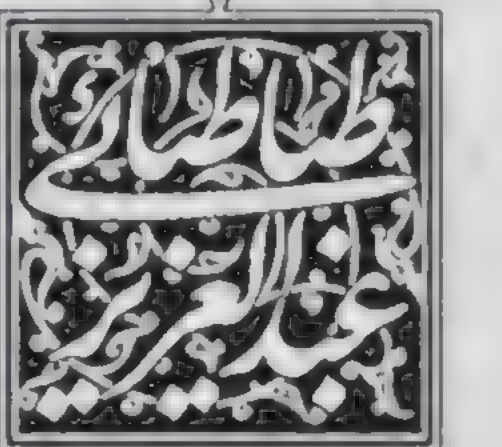 عبدالعزیز
طباطبائی